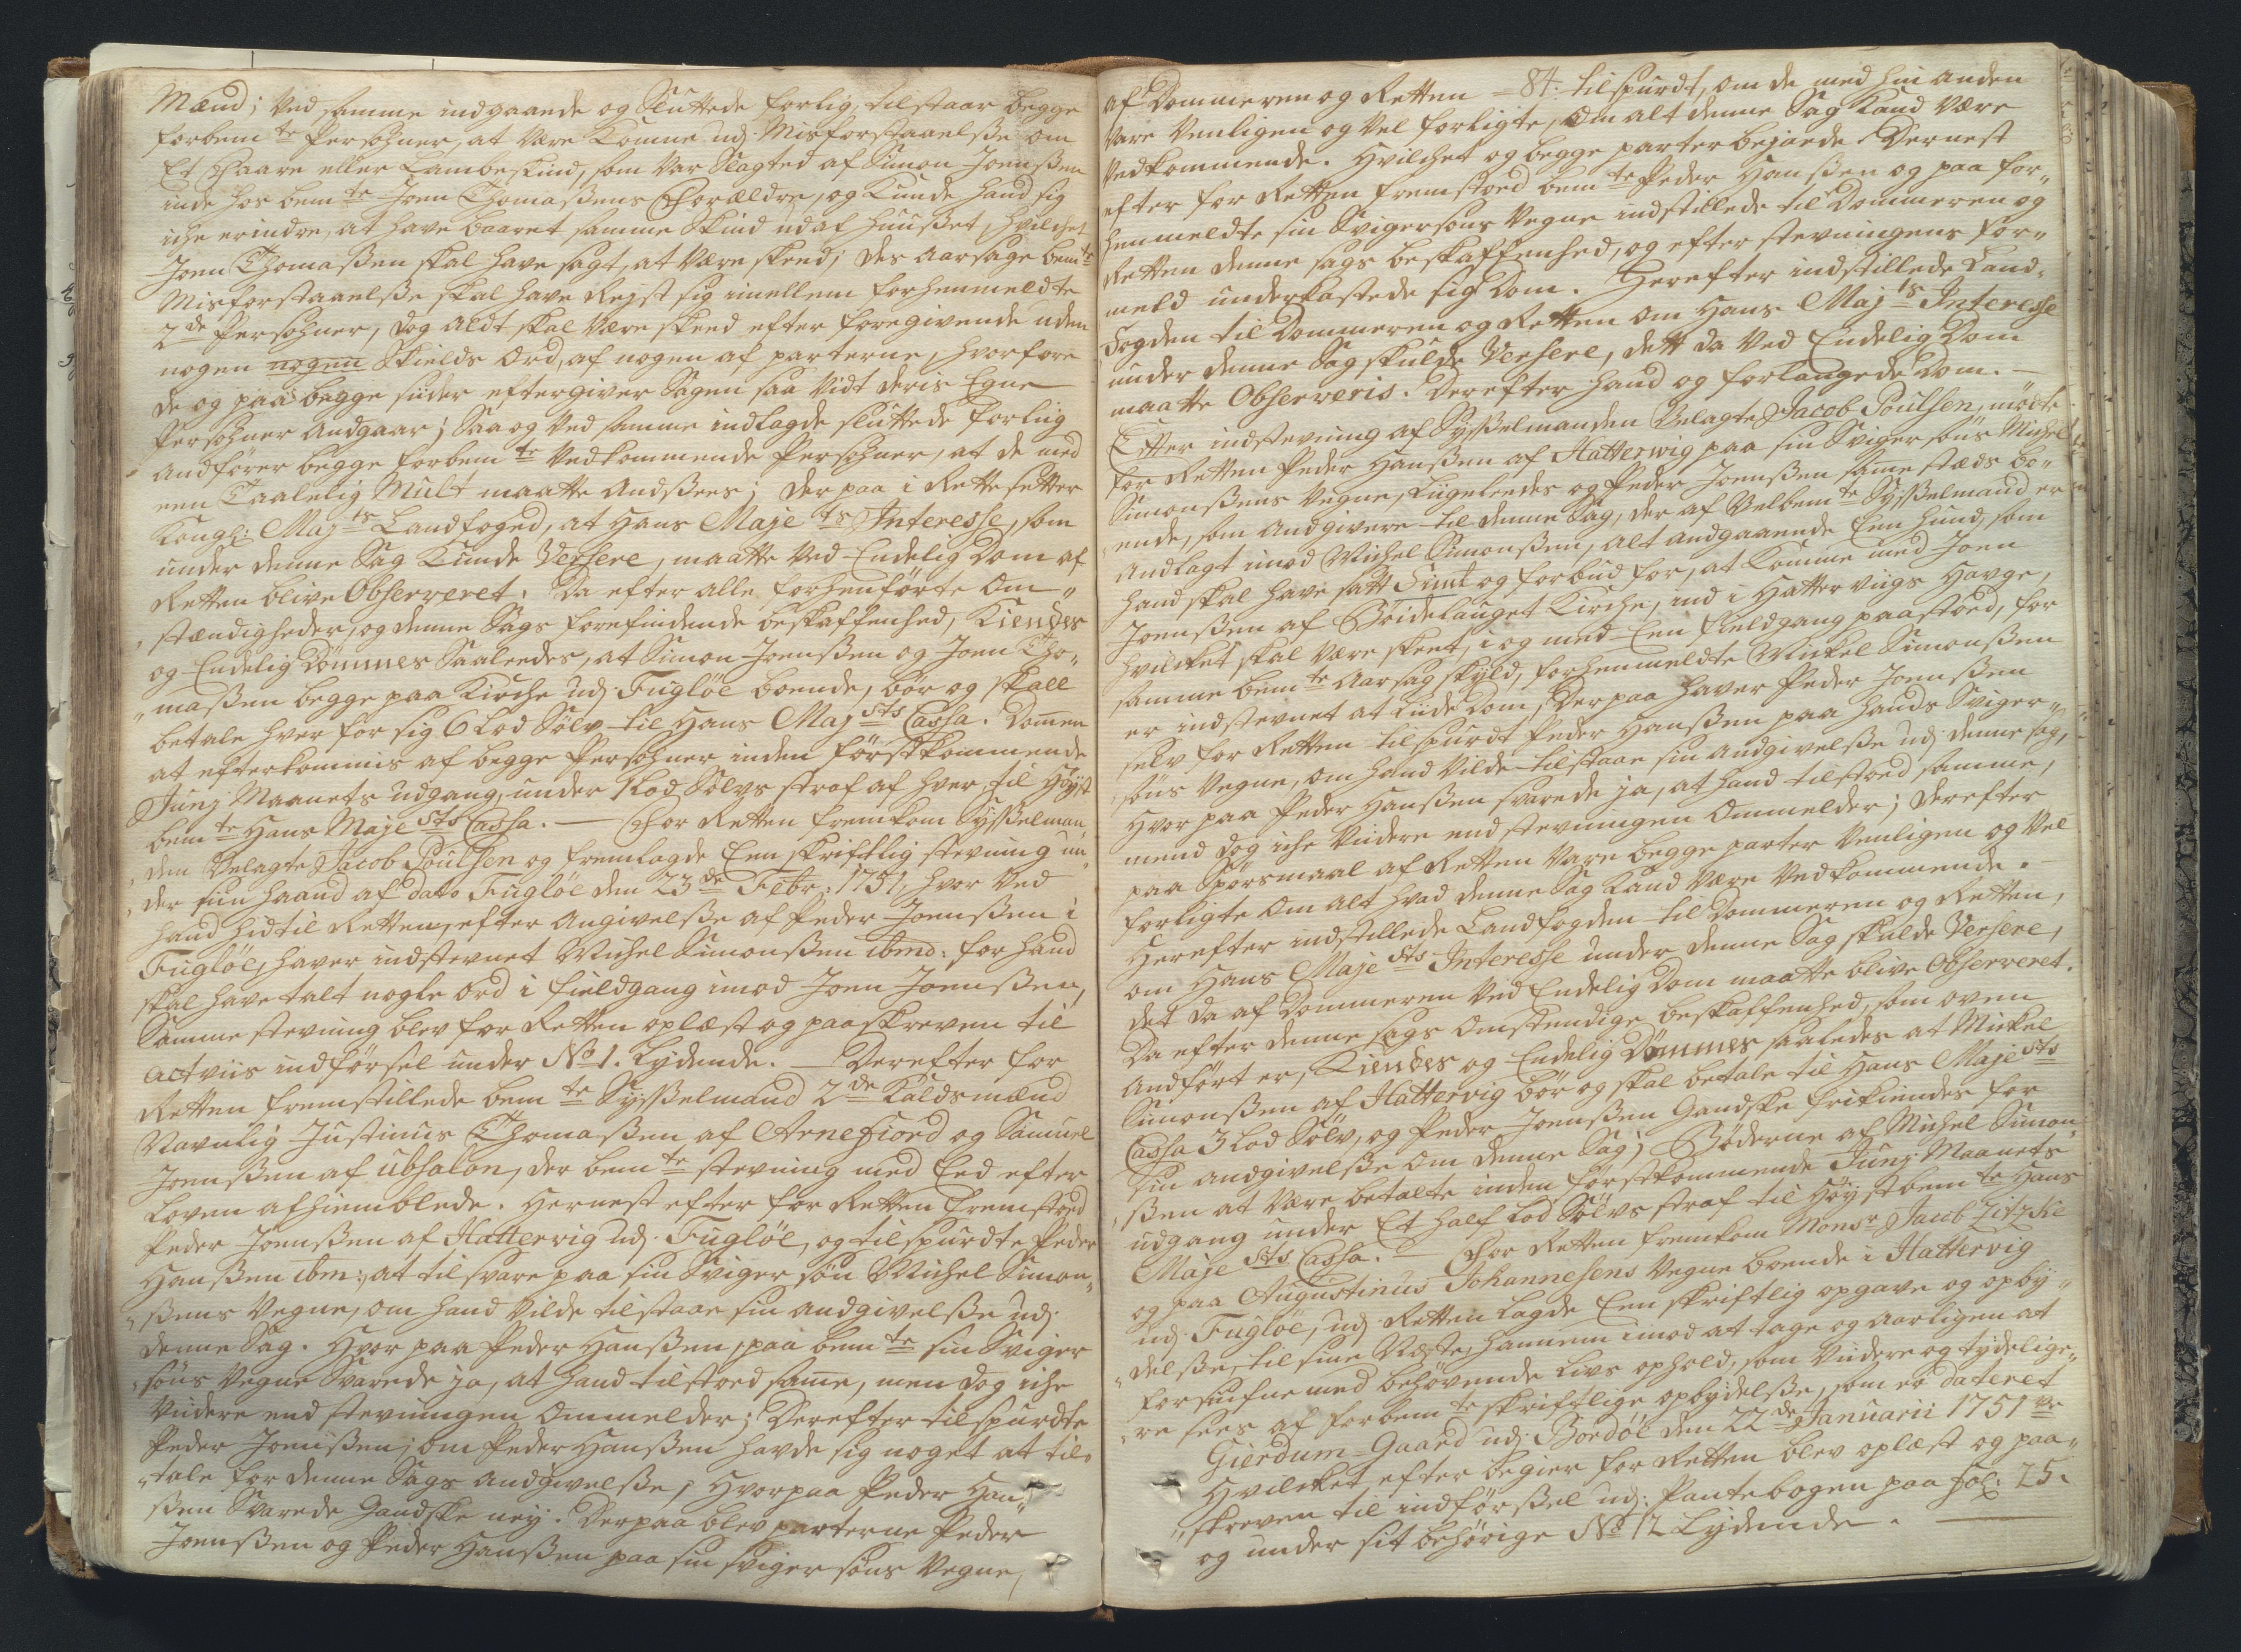 Mænd; Ved samme indgaaende og Sluttede forlig, tilstaar begge
forbem te Persohner, at være komne udj Misforstaaelsse om
Et Faare eller Lambeskind, som var Slagted af Simon Joenssen
inde hos bem te Joen Thomassens Forældre, og kunde hand sig
iche erindre, at have baaret samme Skind ud af Huusset, hvilchet
Joen Thomassen skal have sagt, at være skeed; des aarsage bem te
Misforstaaelsse skal have Reyst sig imellem forhenmeldte
2 de Persohner, dog aldt skal være skeed efter foregivende uden
nogen nogen Skields Ord, af nogen af parterne, hvorfore
de og paa begge sider eftergiver Sagen saa vidt deris Egne
Persohner Andgaar; Saa og ved samme indlagde sluttede Forliig
Andfører begge forbem te Vedkommende Persohner, at de med
een Taalelig Mult maatte Andssees; Der paa i Rette setter
Kongl: Maj ts Landfoged, at Hans Maje ts Interesse, som
under denne Sag kunde Versere, maatte ved Endelig Dom af
Retten blive Observeret: Da efter alle forhenførte Om„
„stændigheder, og denne Sags forefindende beskaffenhed, Kiendes
og Endelig Dømmes Saaleedes, at Simon Joenssen og Joen Tho„
„massen begge paa Kirche udj Fugløe boende, bør og skall
betale hver for sig 6 Lod Sølv til Hans Maj sts Cassa. Domen
at efterkommis af begge Persohner inden førstkommende
Junj Maanets udgang, under 1 Lod Sølvs straf af hver, til Høyst
bem te Hans Maje sts Cassa. — For Retten fremkom Sysselman„
„den Velagte Jacob Poulsen og fremlagde Een skriftlig stevning un„
„der sin haand af dato Fugløe den 23 de Febr: 1751, hvor ved
hand hidtil Retten, efter Angivelsse af Peder Joenssen i
Fugløe, haver indstevnet Michel Simonssen ibmd: for hand
skal have talt nogle ord i fieldgang imod Joen Joenssen,
Samme stevning blev for Retten oplæst og paaskreven til
actviis indførsel under No 1. Lydende. — Derefter for
Retten fremstillede bem te Sysselmand 2 de Kaldsmænd
Navnlig Justinus Thomassen af Arnefiord og Samuel
Joenssen af Ubsalon, der bem te stevning med Eed efter
Loven afhiemblede. Hernest efter for Retten fremstoed
Peder Joenssen af Hattervig udj Fugløe, og tilspurdte Peder
Hanssen ibm:, at tilsvare paa sin Sviger søn Michel Simon„
„ssens Vegne, om hand vilde tilstaae sin andgivelsse udj
denne Sag. Hvor paa Peder Hanssen, paa bem te sin Sviger
„søns Vegne Svarede ja, at hand tilstoed same, men dog iche
viidere end stevningen Ommelder; Derefter tilspurdte
Peder Joenssen, om Peder Hanssen havde sig noget at til„
„tale for denne Sags andgivelsse, Hvorpaa Peder Han„
ssen Svarede Gandske ney. Derpaa blev parterne Peder
Joenssen og Peder Hanssen paa sin sviger søns Vegne,
af Dommeren og Retten = 84. tilspurdt, om de med hin anden
vare Venligen og vel forligte, Om alt denne Sag kand være
Vedkommende. Hvilchet og begge parter bejaede. Dernest
efter for Retten fremstoed bem te Peder Hanssen og paa for„
henmeldte sin Svigersøns Vegne indstillede til Dommeren og
Retten denne sags beskaffenhed, og efter stevningens for„
meld underkastede sig Dom. Herefter indstillede Land„
Fogden til Dommeren og Retten om Hans Maj ts Interesse
under denne Sag skulde Versere, dett da ved Endelig Dom
maatte Observeris. Derefter hand og forlangede Dom. —
Efter indstevning af Sysselmanden Velagte Jacob Poulsen, mødte
for Retten Peder Hanssen af Hatterwig paa sin Sviger søns Michel
Simonssens Vegne, Liigeleedes og Peder Joenssen same stæds bo„
ende, som Andgivere til denne Sag, der af Velbem te Sysselmand er
Andlagt imod Michel Simonssen, alt andgaaende Een Hund, som
hand skal have satt Fimt og forbud for, at komme med Joen
Joenssen af Bøidelauget Kirche, ind i Hatterviigs Hauge,
Hvilcket skal være skeet, i og med Een fieldgang paastoed, for
samme bem te Aarsag skyld, forhenmeldte Mickel Simonssen
er indstevnet at Liide Dom, Derpaa haver Peder Joenssen
selv for Retten tilspurdt Peder Hanssen paa hands Sviger„
søns Vegne, om hand vilde tilstaae sin andgivelsse udj denne sag,
Hvor paa Peder Hanssen svarede ja, at hand tilstoed samme,
mend dog iche viidere end stevningen Ommelder; Derefter
paa Spørsmaal af Retten vare begge parter Venligen og vel
forligte Om alt hvad denne Sag kand være vedkommende.
Herefter indstillede Landfogden til Dommeren og Retten,
om Hans Maje sts Interesse under denne Sag skulde Versere,
det da af Dommeren ved Endelig Dom maatte blive Observeret.
Da efter denne sags Omstendige beskaffenhed, som oven
Andført er, Kiendes og Endelig Dømmes saaledes at Mickel
Simonssen af Hattervig bør og skal betale til Hans Maje sts
Cassa 3 Lod Sølv, og Peder Joenssen Gandske frikiendes for
sin andgivelsse Om denne Sag; Bøderne af Michel Simon„
„ssen at være betalte inden førstkommende Junj Maanets
udgang under Et half Lod Sølvs straf til Høystbem te Hans
Maje sts Cassa. — For Retten fremkom Monsr Jacob Zitzke
og paa Augustinus Johannesens Vegne boende i Hattervig
udj Fugløe, udj Retten lagde Een skriftlig opgave og opby„
„delsse, til sine Næste, hannem imod at tage og aarligen at
forsiufne med behøvende Livs ophold, som Viidere og tydelige„
„re sees af forbem te skriftlige opbydelsse, som er dateret
Gierdum=Gaard udj Bordøe den 22 de Januarii 1751 ve
Hvilcket efter begier for Retten blev oplæst og paa„
„skreven til indførssel udj: Pantebogen paa fol: 25.
og under sit behørige No 12 Lydende.